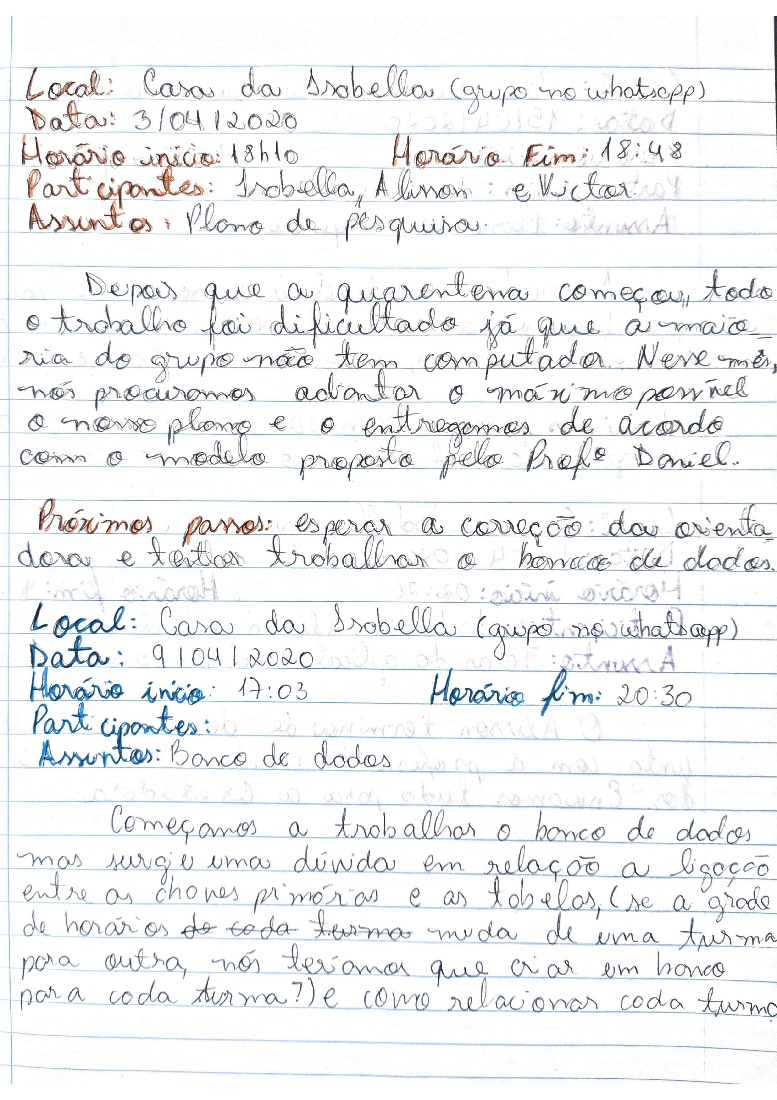 Local: Casa da Isabella (grupo no whatsapp)
Data: 3/04/2020
Horário início: 18h10 Horário Fim: 18:48
Participantes: Isabella, Alisson e Victor
Assuntos: Plano de pesquisa.
Depois que a quarentena começou, todo
o trabalho foi dificultado já que a maio-
ria do grupo não tem computador. Nesse mês,
nós procuramos adiantar o máximo possível
o nosso plano e o entregamos de acordo
com o modelo proposto pelo Profº Daniel.
Próximos passos: esperar a correção da orienta-
dora e tentar trabalhar o banco de dados.
Local: Casa da Isabella (grupo no whatsapp)
Data: 9/04/2020
Horário início: 17:03 Horário fim: 20:30
Participantes:
Assuntos: Banco de dados
Começamos a trabalhar o banco de dados
mas surgiu uma dúvida em relação a ligação
entre as chaves primárias e as tabelas, (se a grade
de horários de cada turma muda de uma turma
para outra, nós teríamos que criar em banco
para cada turma?) e como relacionar cada turma